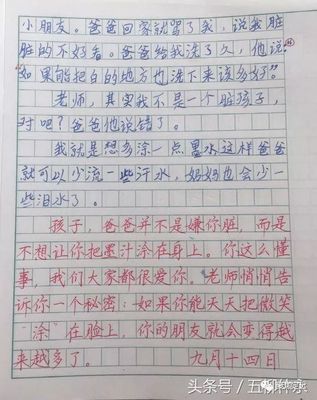 小朋友。爸爸回家就骂了我，说我脏
脏的不好看。爸爸给我洗了久，他说：
“如果能把白的地方也洗下来该多好”。
老师，其实我不是一个脏孩子，
对吧？爸爸他说错了。
我就是想多涂一点墨水这样爸爸
就可以少流一些汗水，妈妈也会少一
些泪水了。
孩子，爸爸并不是嫌你脏，而是
不想让你把墨汁涂在身上。你这么懂
事，我们大家都很爱你。老师悄悄告
诉你一个秘密：如果你能天天把微笑
“涂”在脸上，你的朋友就会变得越
来越多了。 九月十四日
头条号